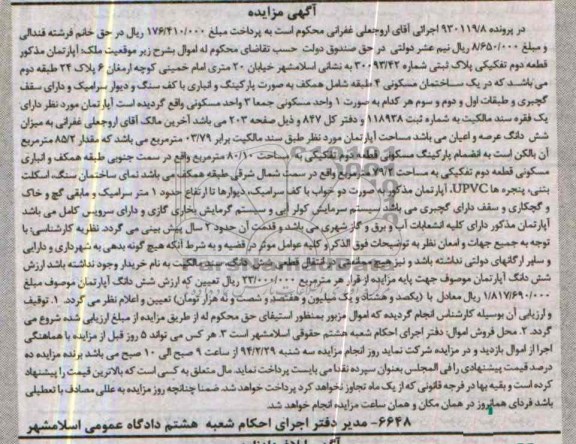 آگهی مزایده
در پرونده ۹۳۰۱۱۹/۸ اجرائی آقای اروجعلی غفرانی محکوم است به پرداخت مبلغ ۱۷۶/۴۱۰/۰۰۰ ریال در حق خانم فرشته قندالی
و مبلغ ۸/۶۵۰/۰۰۰ ریال نیم عشر دولتی در حق صندوق دولت حسب تقاضای محکوم له اموال بشرح زیر موقعیت ملک: آپارتمان مذکور
قطعه دوم تفکیکی پلاک ثبتی شماره ۳۰۰۹۳/۴۲ به نشانی اسلامشهر خیابان ۲۰ متری امام خمینی کوچه ارمغان ۶ پلاک ۲۴ طبقه دوم
می باشد که در یک ساختمان مسکونی ۴ طبقه شامل همکف به صورت پارکینگ و انباری با کف سنگ و دیوار سرامیک و دارای سقف
گچبری و طبقات اول و دوم و سوم هر کدام به صورت ۱ واحد مسکونی جمعا ۳ واحد مسکونی واقع گردیده است آپارتمان مورد نظر دارای
یک فقره سند مالکیت به شماره ثبت ۱۱۸۹۳۸ و دفتر کل ۸۴۷ و ذیل صفحه ۲۰۳ می باشد آخرین مالک آقای اروجعلی غفرانی به میزان
شش دانگ عرصه و اعیان می باشد مساحت آپارتمان مورد نظر طبق سند مالکیت برابر ۰۳/۷۹ مترمربع می باشد که مقدار ۸۵/۲ مترمربع
آن بالکن است به انضمام پارکینگ مسکونی قطعه دوم تفکیکی به مساحت ۸۰/۱۰ مترمربع واقع در سمت جنوبی طبقه همکف و انباری
مسکونی قطعه دوم تفکیکی به مساحت ۷۹/۲ مترمربع واقع در سمت شمال شرقی طبقه همکف می باشد نمای ساختمان سنگ، اسکلت
بتنی، پنجره ها UPVC، آپارتمان مذکور به صورت دو خواب با کف سرامیک، دیوارها تا ارتفاع حدود ۱ متر سرامیک و مابقی گچ و خاک
و گچکاری و سقف دارای گچبری می باشد سیستم سرمایش کولر آبی و سیستم گرمایش بخاری گازی و دارای سرویس کامل می باشد
آپارتمان مذکور دارای کلیه انشعابات آب و برق و گاز شهری می باشد و قدمت آن حدود ۲ سال پیش بینی می گردد. نظریه کارشناسی: با
توجه به جمیع جهات و امعان نظر به توضیحات فوق الذکر و کلیه عوامل موثر در قضیه و به شرط آنکه هیچ گونه بدهی به شهرداری و دارایی
و سایر ارگانهای دولتی نداشته باشد و نیز هیچ در انتقال قطعی دانگ سند مالکیت به نام خریدار وجود نداشته باشد ارزش
شش دانگ آپارتمان موصوف جهت پایه مزایده از قرار هر مترمربع ۲۳/۰۰۰/۰۰۰ ریال تعیین که ارزش شش دانگ آپارتمان موصوف مبلغ
۱/۸۱۷/۶۹۰/۰۰۰ ریال معادل با (یکصد و هشتاد و یک میلیون و هفتصد و شصت و نه هزار تومان) تعیین و اعلام نظر می گردد. ۱. توقیف
و ارزیابی آن بوسیله کارشناس انجام گردیده که اموال مزبور بمنظور استیفای حق محکوم له از طریق مزایده از مبلغ ارزیابی شده شروع می
گردد. ۲. محل فروش اموال: دفتر اجرای احکام شعبه هشتم حقوقی اسلامشهر است ۳. هر کس می تواند ۵ روز قبل از مزایده با هماهنگی
اجرا از اموال بازدید و در مزایده شرکت نماید روز انجام مزایده سه شنبه ۹۴/۲/۲۹ از ساعت ۹ صبح الی ۱۰ صبح می باشد برنده مزایده ده
درصد قیمت پیشنهادی را فی المجلس بعنوان سپرده نقدا می بایست پرداخت نماید. مال متعلق به کسی است که بالاترین قیمت را پیشنهاد
کرده است و بقیه بها در فرجه قانونی که از یک ماه تجاوز نخواهد کرد پرداخت خواهد شد. ضمنا چنانچه روز مزایده به عللی مصادف با تعطیلی
باشد فردای همانروز در همان مکان و همان ساعت مزایده انجام خواهد شد.
۶۶۴۸- مدیر دفتر اجرای احکام شعبه هشتم دادگاه عمومی اسلامشهر